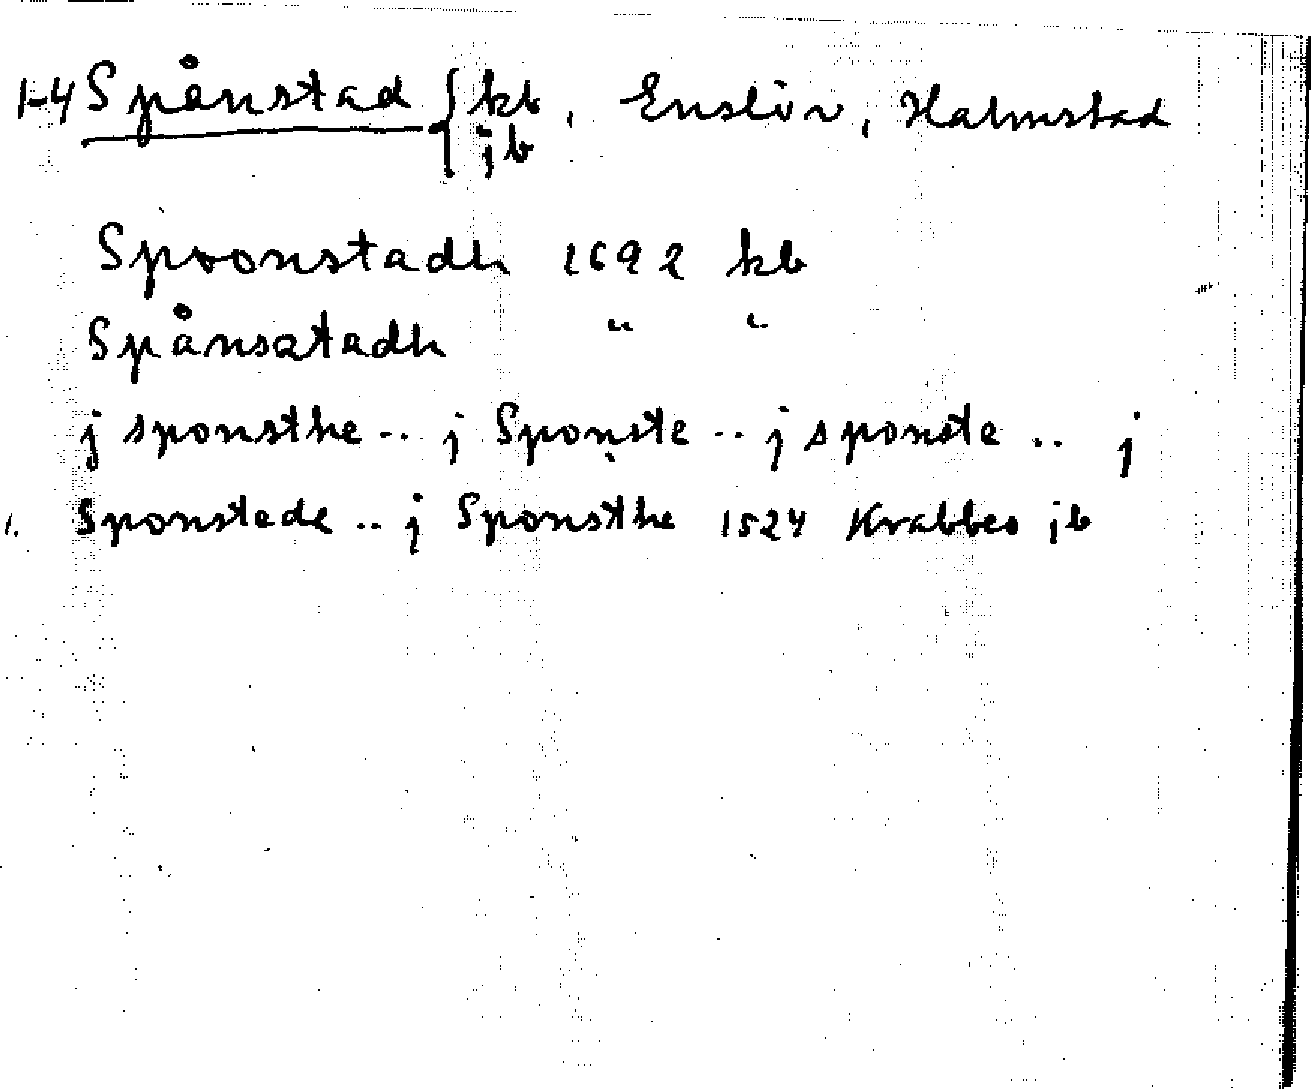 1-4 Spånstad { kb, Enslöv, Halmstad
jb
Spoonstadh 1692 kb
Spånsatadh " "
j sponsthe .. j Sponste .. j sponste .. j
1. Sponstede .. j Sponsthe 1524 Krabbes jb